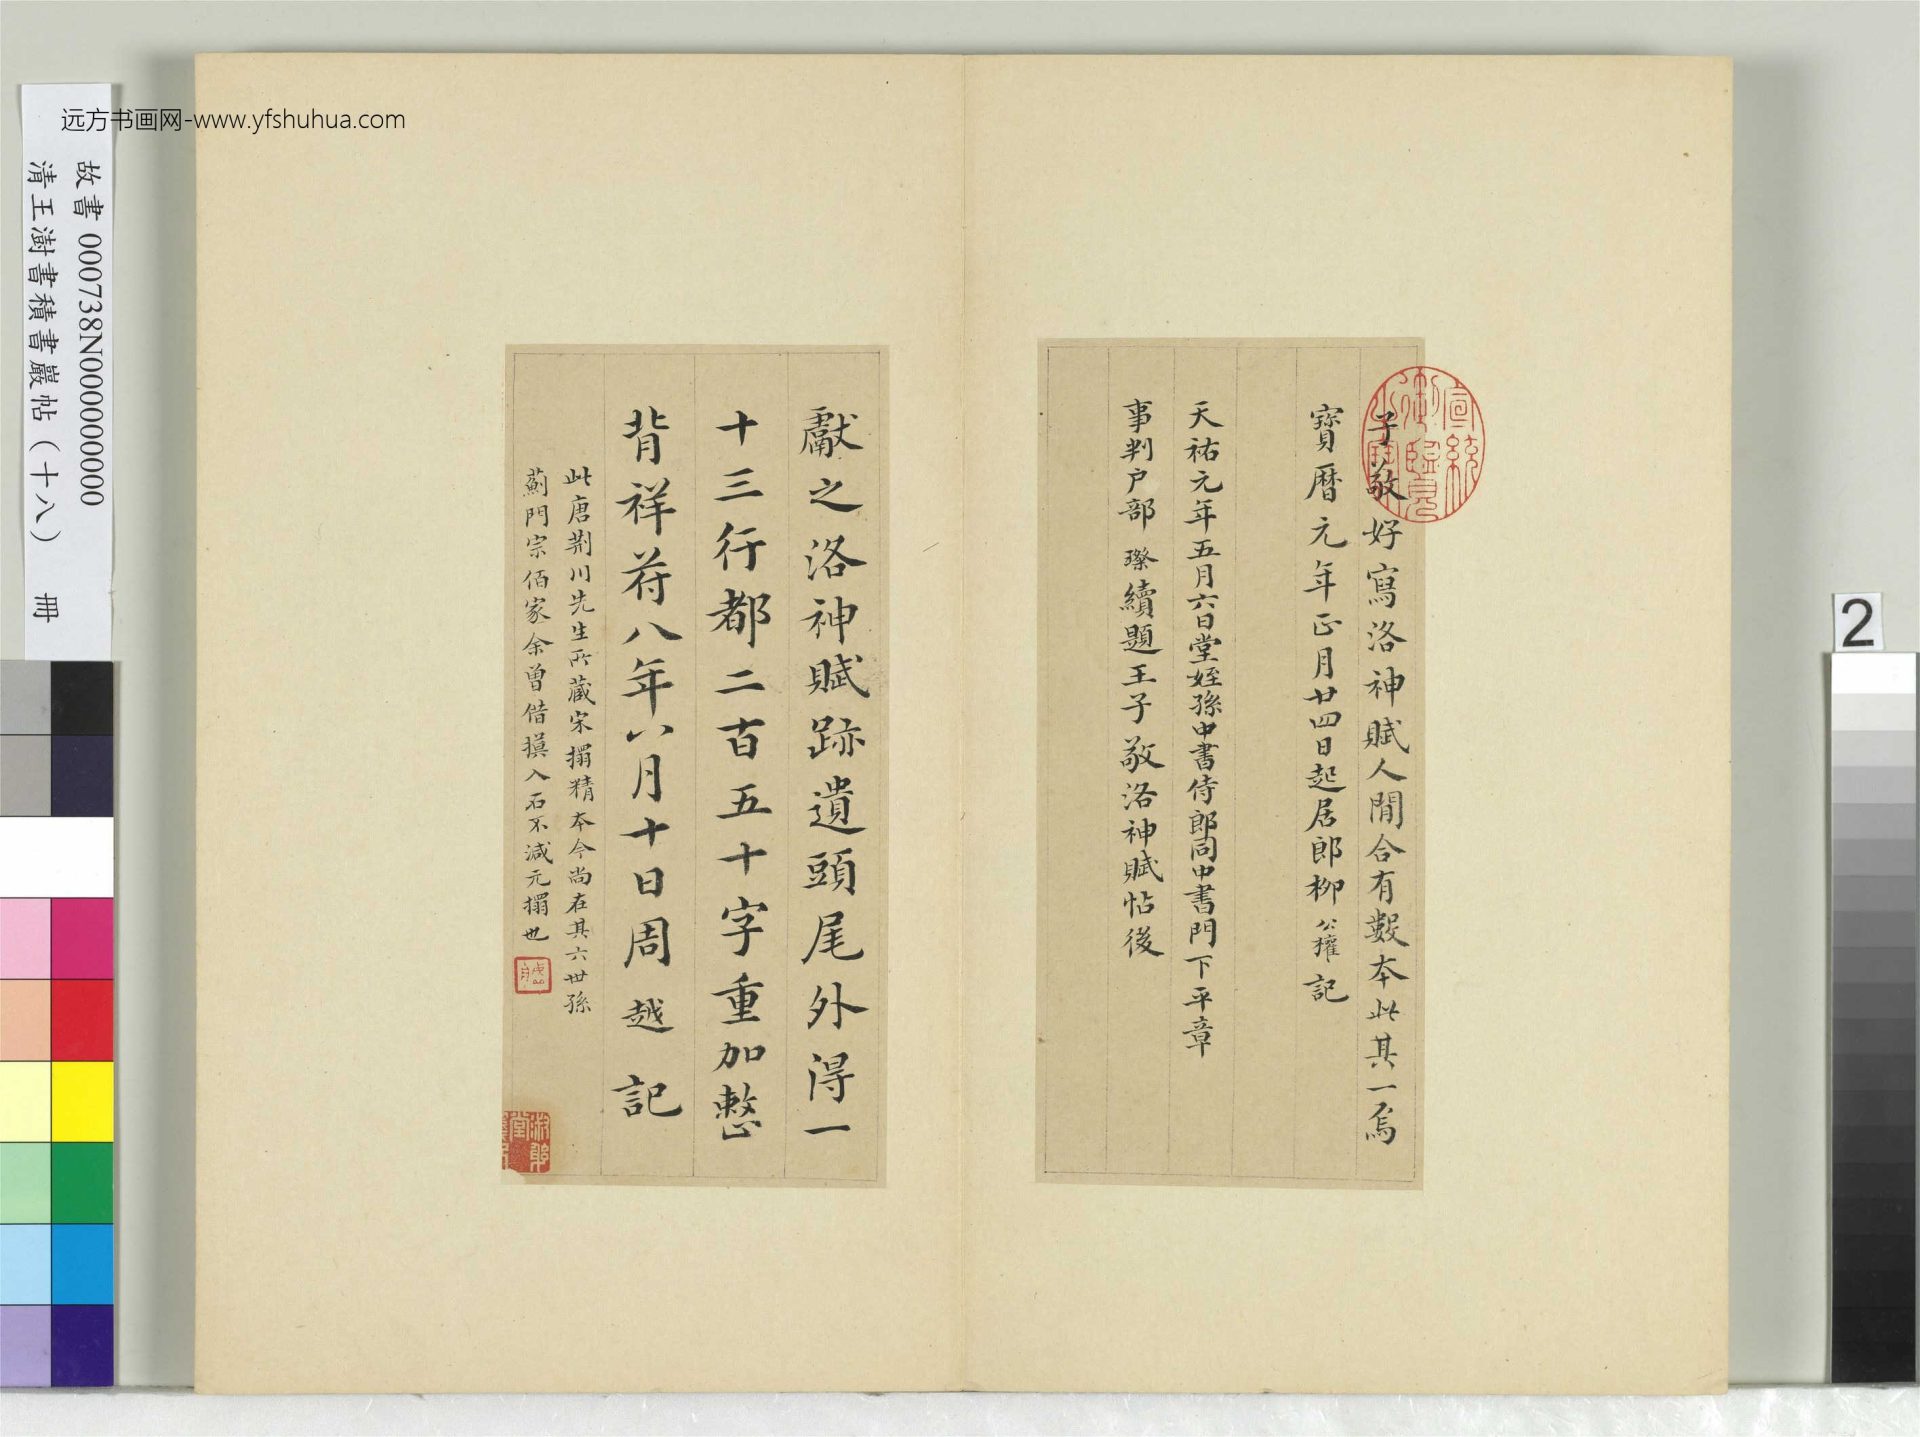 远方书画网-www.yfshuhua.com
故書 000738N000000000
清王澍書積書巖帖（十八） 冊
2
宣統御覽之寶
子敬好寫洛神賦人間合有數本此其一焉
寶曆元年正月廿四日起居郎柳公權記
天祐元年五月六日堂姪孫中書侍郎同中書門下平章
事判户部璨續題王子敬洛神賦帖後
獻之洛神賦跡遺頭尾外得一
十三行都二百五十字重加整
背祥苻八年八月十日周越記
此唐荆川先生所藏宋搨精本今尚在其六世孫
薊門宗伯家余曾借摸入石不減元搨也